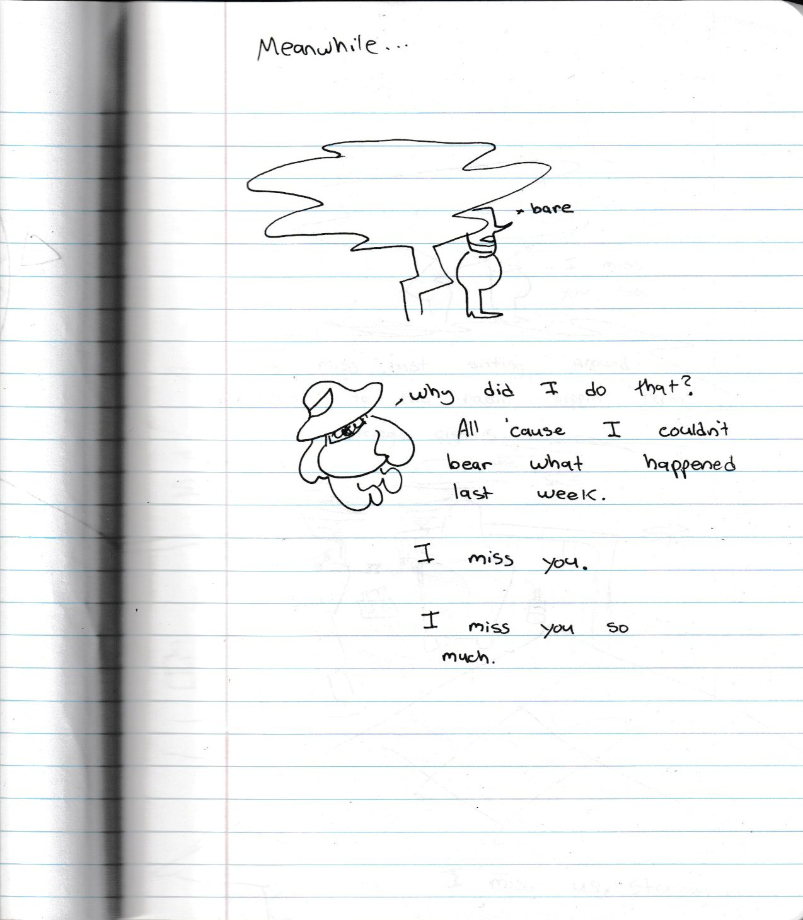 Meanwhile...
* bare
why did I do that?
All 'cause I couldn't
bear what happened
last week.
I miss you.
I miss you so
much.